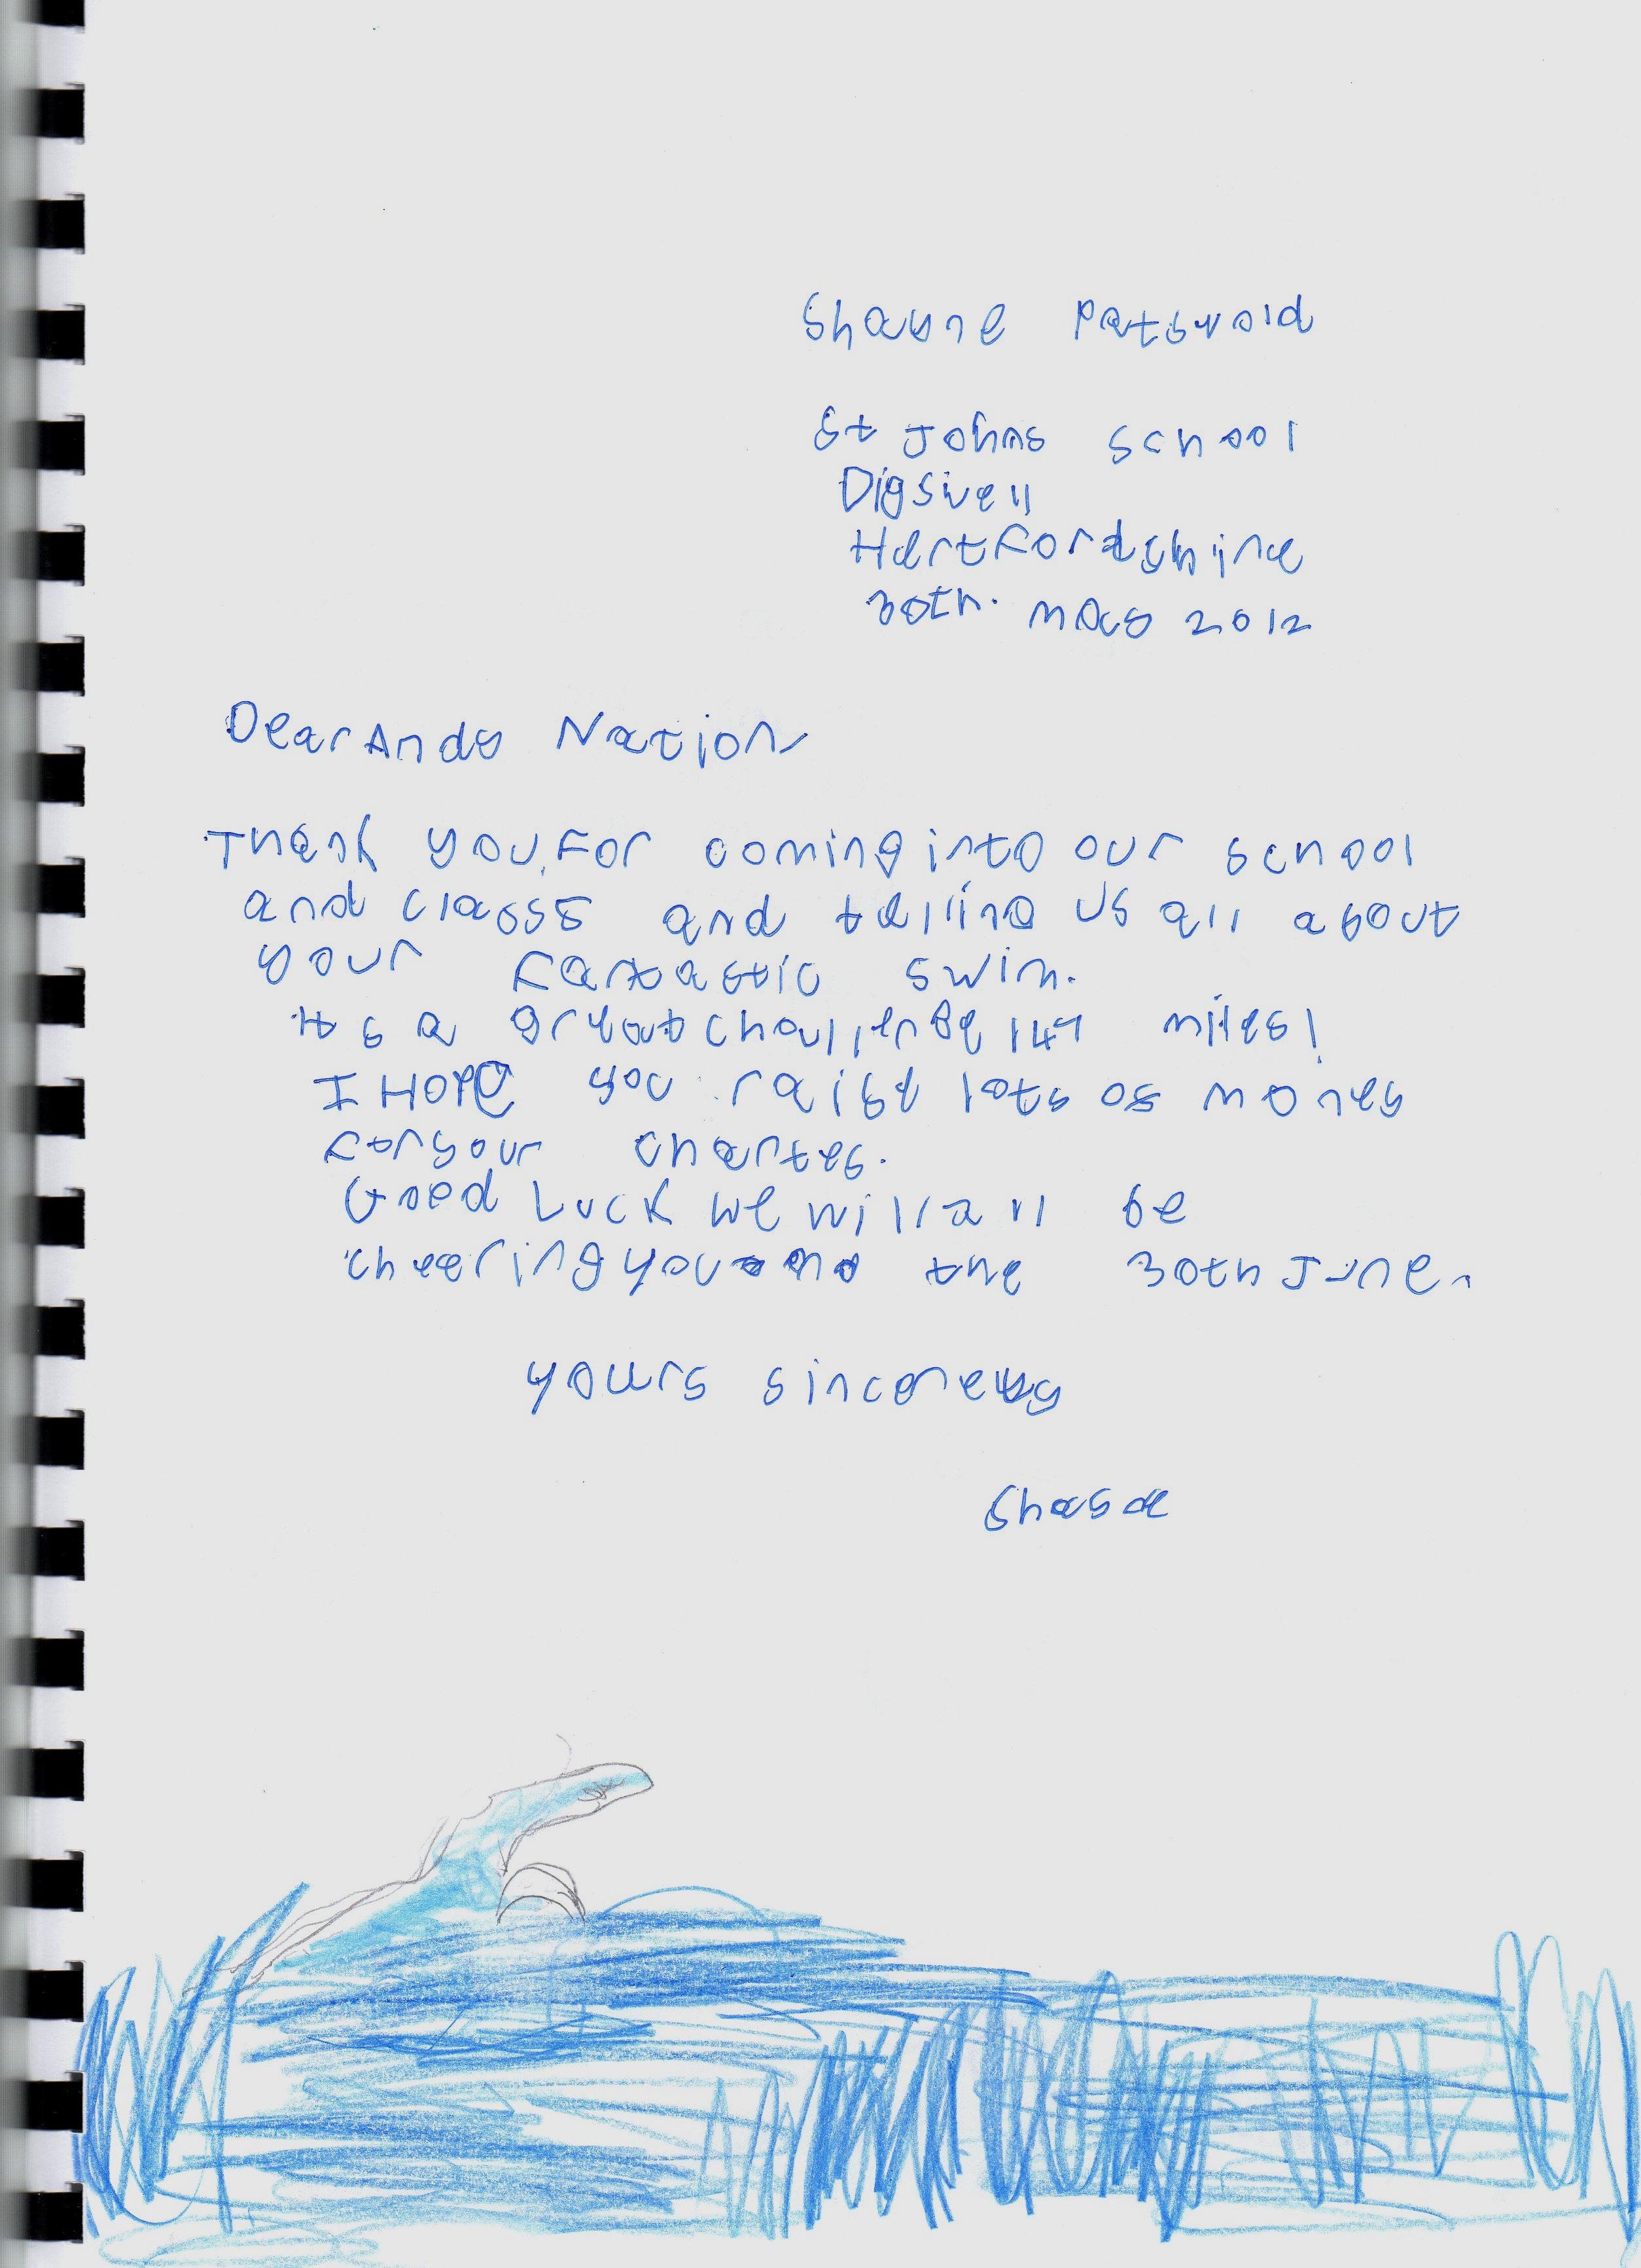 Shayne
St Johns school
Digswell
Hertfordshire
30th. may 2012
Dear Andy Nation
Thank you for coming into our school
and class 5 and telling us all about
your fantastic swim.
It s a great challenge 147 miles!
I HOPe you raise lots of money
for your chartes.
Good Luck we will all be
cheering you on the 30th June.
yours sincerely